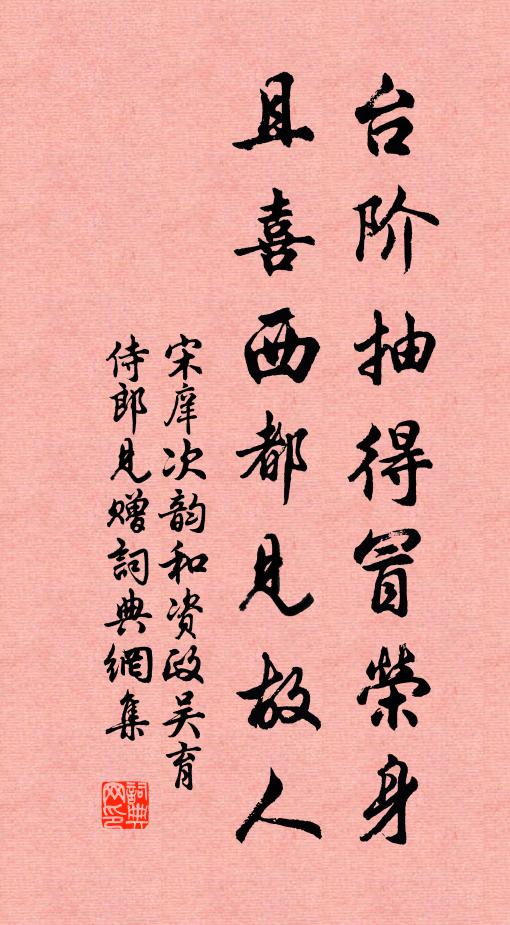 台阶抽得冒榮身
且喜西都見故人
宋庠次韵和资政吴育
侍郎見赠詞典網集
詞典网印